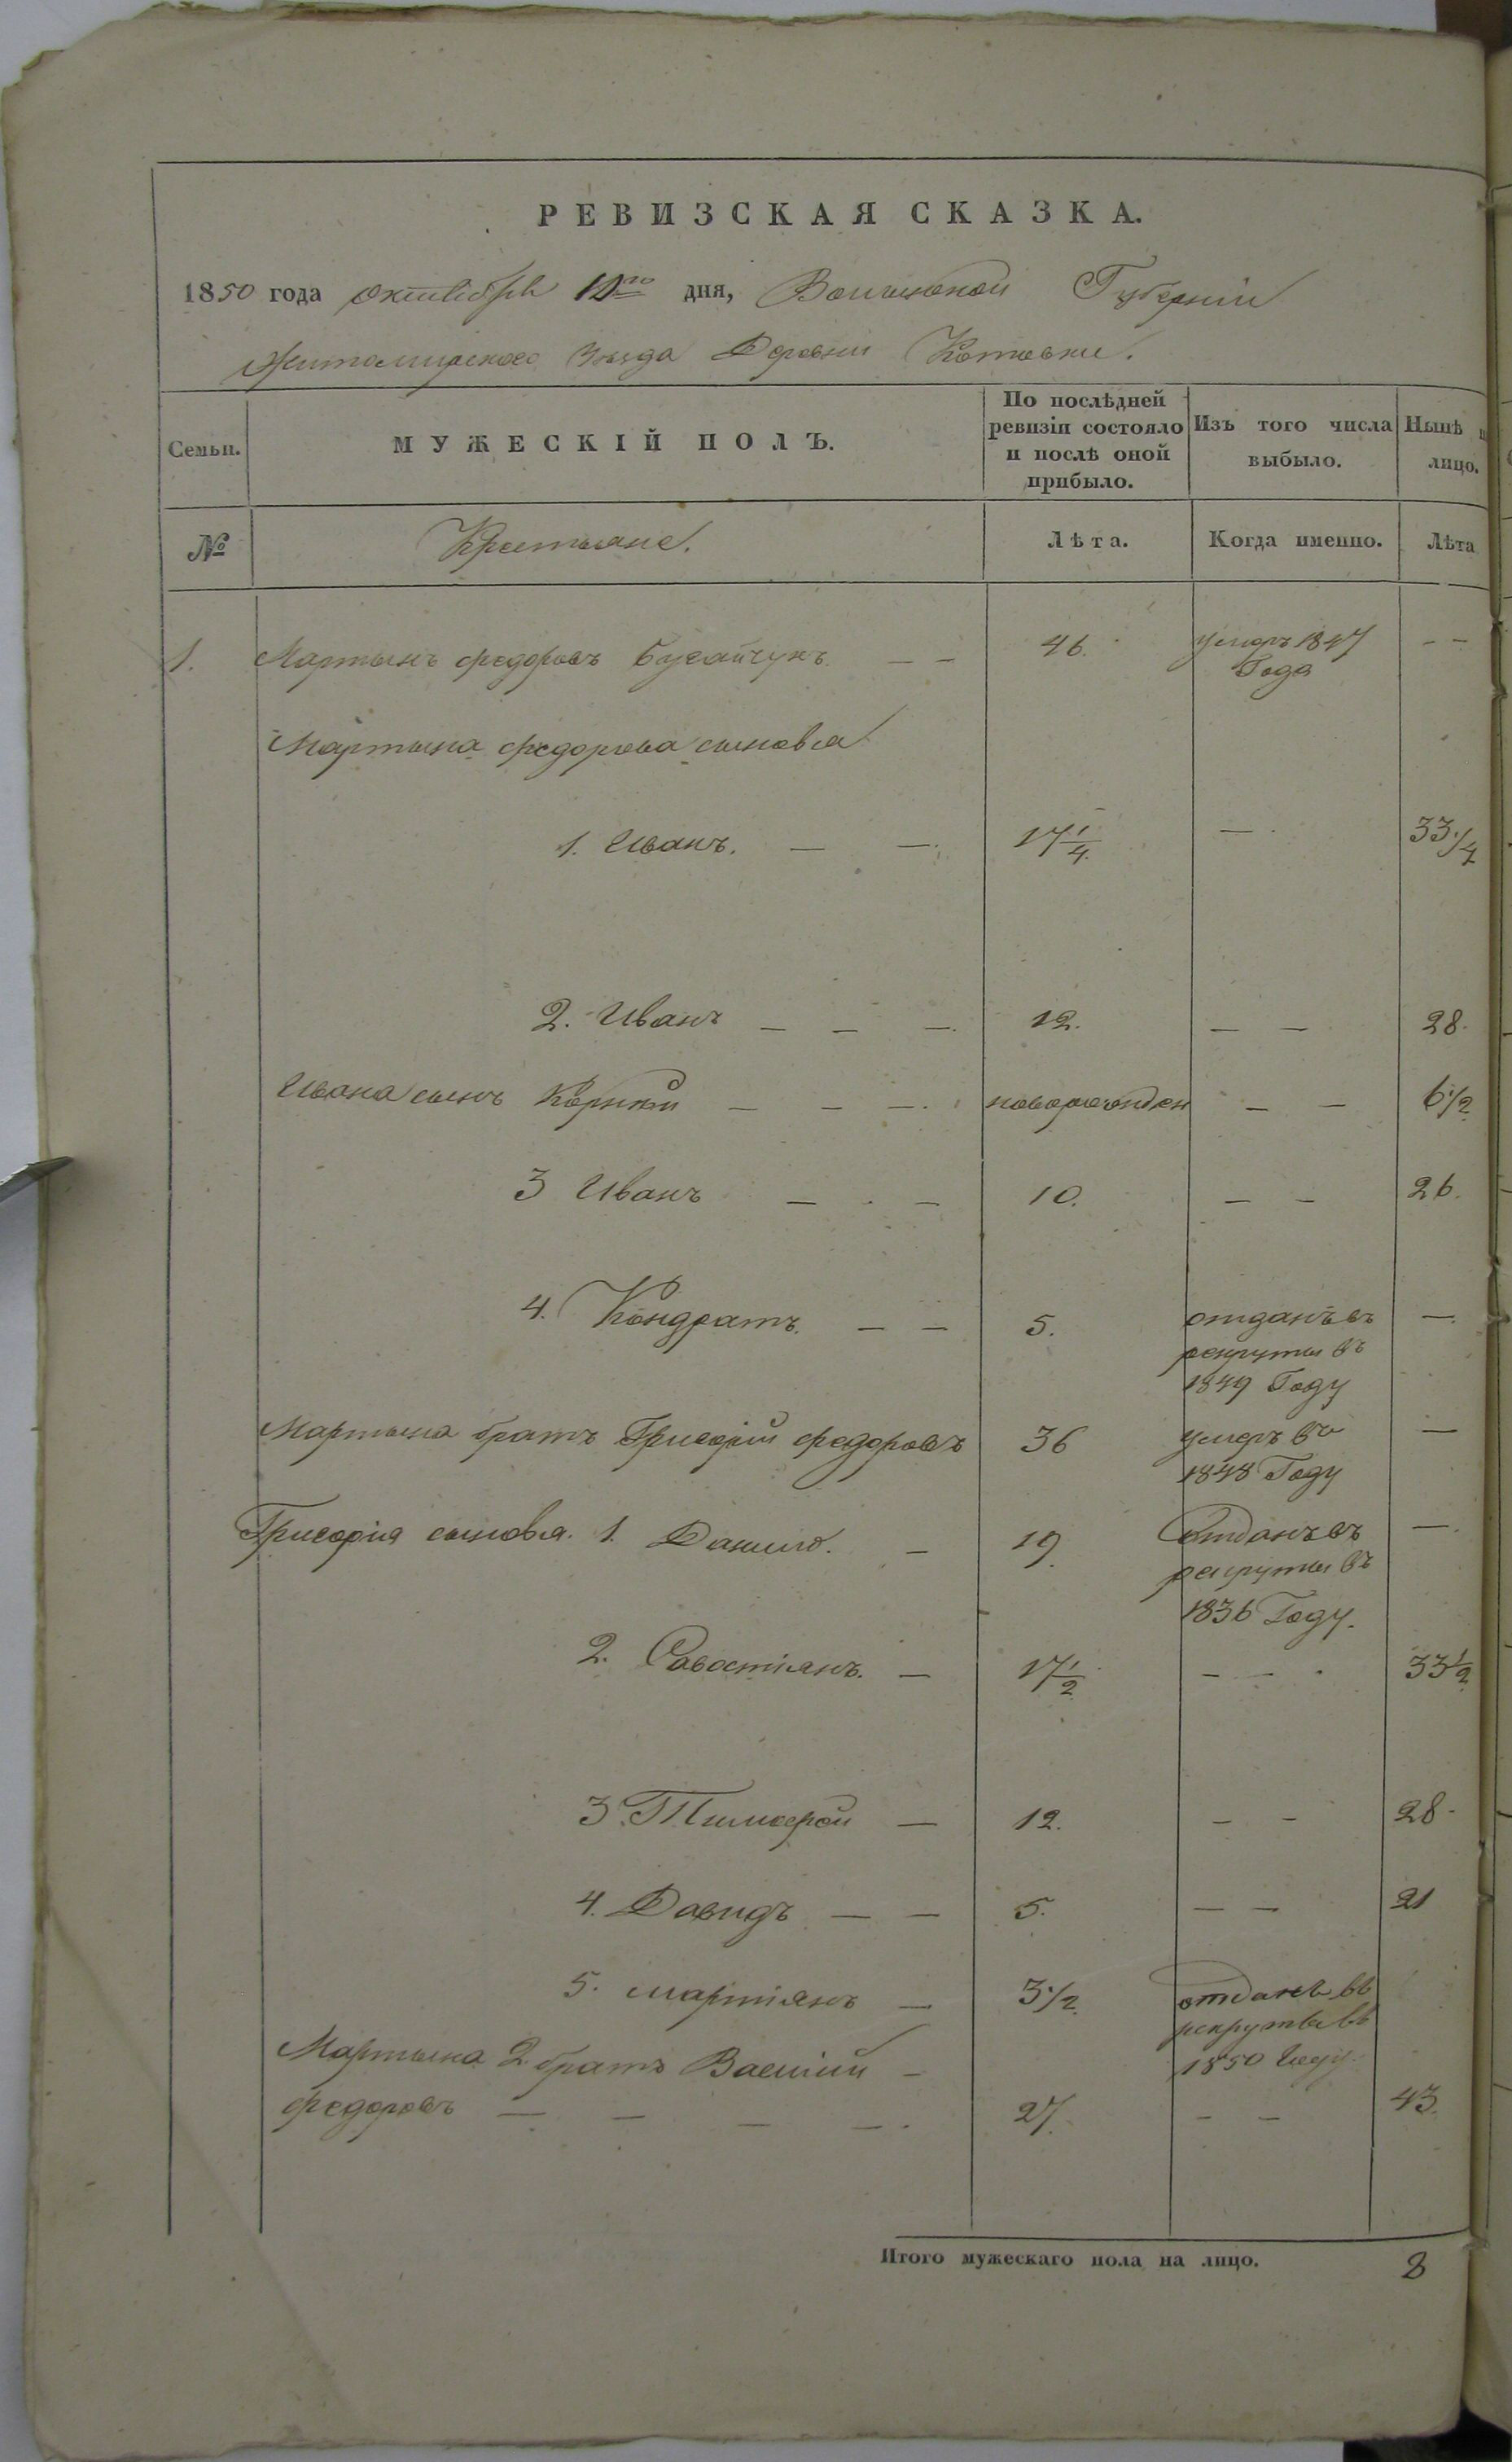 РЕВИЗСКАЯ СКАЗКА.
1850 года октября 10го дня, Волынской Губернии
Житомирскаго Уезда Деревни Котовки.
Семьи.
МУЖЕСКІЙ ПОЛЪ.
По послѣдней
ревизіи состояло
и послѣ оной
прибыло.
Изъ того числа
выбыло.
Нынѣ н
лицо.
№
Крестьяне.
Лѣта.
Когда именно.
Лѣта
1. Мартынъ Федоровъ — — 46. умеръ 1847 — —
Года
Мартына Федорова сыновья
1. Иванъ. — — 17 1/4 — 33 1/4
2. Иванъ — — — 12. — — 28.
Ивана сынъ Корнѣй — — — новорожден — — 6 1/2
3 Иванъ — — 10. — — 26.
4. Кондратъ — — 5. отданъ въ —
рекруты въ
1849 Году
Мартына братъ Григорій Федоровъ 36 умеръ въ —
1848 Году
Григорія сыновья. 1. Данило. — 19. Отданъ въ —
рекруты въ
1836 Году.
2. Савостіянъ. — 17 1/2 — — 33 1/2
3. Тимофей — 12. — — 28.
4. Давидъ — — 5. — — 21
5. Мартіянъ — 3 1/2 отданъ въ
рекруты въ
1850 Году.
Мартына 2 братъ Василій —
Федоровъ — — — — 27. — — 43.
Итого мужескаго пола на лицо. 8